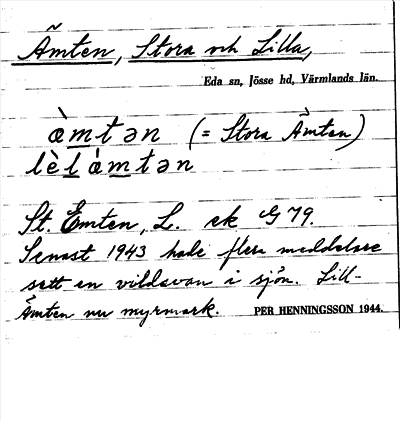 Ämten, Stora och Lilla,
Eda sn, Jösse hd, Värmlands län.
àmtən (= Stora Ämten)
lèlàmtən
St. Emten, L. ek G 79.
Senast 1943 hade flera meddelare
sett en vildsvan i sjön. Lill-
Ämten nu myrmark. PER HENNINGSSON 1944.